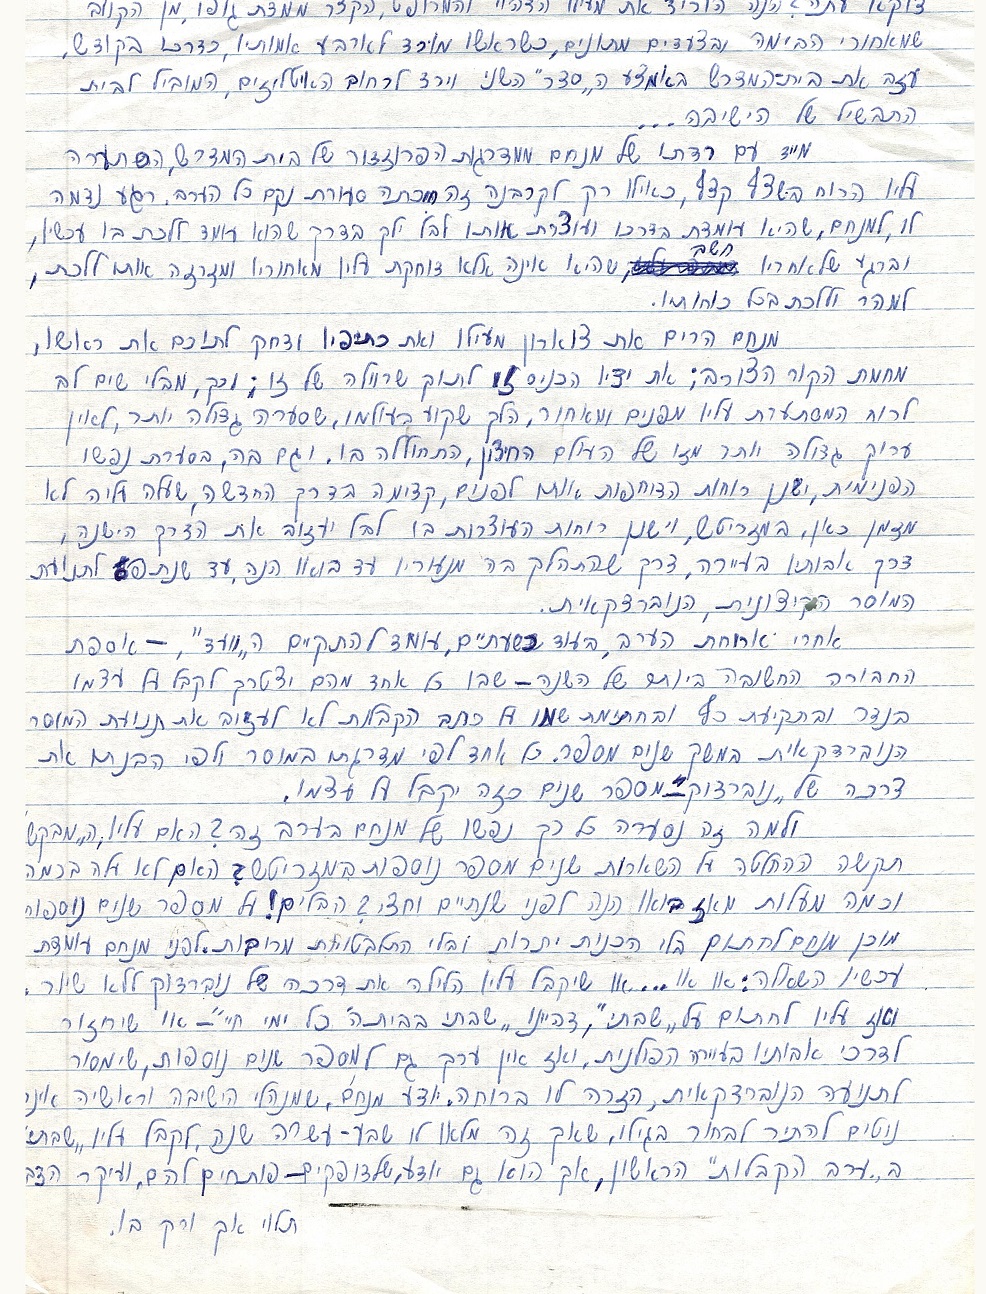 דוקא עתה? הנה הוריד את מעילו הדהוי והמרופט, הקצר ממדת גופו, מן הקולב
שמאחורי הבימה ובצעדים מתונים, כשראשו מורד לארבע אמותיו, כדרכו בקודש,
עזב את בית־המדרש באמצע ה„סדר" השני וירד לרחוב האיטליזים, המוביל לבית
התבשיל של הישיבה...
מייד עם רדתו של מנחם ממדרגות הפרוזדור של בית המדרש, הסתערה
עליו הרוח בשצף קצף, כאילו רק לקרבנה זה חיכתה סערת נקם כל הערב. רגע נדמה
לו, למנחם, שהיא עומדת בדרכו ועוצרת אותו לבל ילך בדרך שהוא עומד ללכת בו עכשיו,
וברגע שלאחריו חשב, שהיא אינה אלא דוחקת עליו מאחוריו ומזרזה אותו ללכת,
למהר וללכת בכל כוחותיו.
מנחם הרים את צוארון מעילו ואת כתיפיו ודחק לתוכם את ראשו,
מחמת הקור הצורב; את ידיו הכניס זו לתוך שרוולה של זו; וכך, מבלי שים לב
לרוח המסתערת עליו מפנים ומאחור, הלך שקוע בעולמו, שסערה גדולה יותר, לאין
ערוך גדולה יותר מזו של העולם החיצון, התחוללה בו. וגם בה, בסערת נפשו
הפנימית, ישנן רוחות הדוחפות אותו לפנים, קדימה בדרך החדשה, שעלה עליה לא
מזמן כאן, במזריטש, וישנן רוחות העוצרות בו לבל יעזוב את הדרך הישנה,
דרך אבותיו בעיירה, דרך שהתהלך בה מנעוריו עד בואו הנה, עד שנתפס לתנועת
המוסר הקיצונית, הנוברדקאית.
אחרי ארוחת הערב, בעוד כשעתיים, עומד להתקיים ה„וועד", – אספת
החבורה החשובה ביותר של השנה – שבו כל אחד מהם יצטרך לקבל על עצמו
בנדר ובתקיעת כף ובחתימת שמו על כתב הקבלות לא לעזוב את תנועת המוסר
הנוברדקאית במשך שנים מספר. כל אחד לפי מדרגתו במוסר ולפי הבנתו את
דרכה של „נוברדוק" – מספר שנים כזה יקבל על עצמו.
ולמה זה נסערה כל כך נפשו של מנחם בערב זה? האם עליו, ה„מבקש
תקשה ההחלטה על השארות שנים מספר נוספות במזריטש? האם לא עלה בכמה
וכמה מעלות מאז בואו הנה לפני שנתיים וחצי? הבלים! על מספר שנים נוספות
מוכן מנחם לחתום בלי הכנות יתרות ובלי התלבטויות מרובות. לפני מנחם עומדת
עכשיו השאלה: או או... או שיקבל עליו הלילה את דרכה של נוברדוק ללא שיור.
ואז עליו לחתום על „שבתי", דהיינו „שבתי בבית ה' כל ימי חיי" – או שיחזור
לדרכי אבותיו בעיירה הפולנית, ואז אין ערך גם למספר שנים נוספות, שימסור
לתנועה הנוברדקאית, הזרה לו ברוחה. יודע מנחם, שמנהלי הישיבה וראשיה אינם
נוטים להתיר לבחור בגילו, שאך זה מלאו לו שבע־עשרה שנה, לקבל עליו „שבתי
ב„ערב הקבלות" הראשון, אך הוא גם יודע, שלדופקים – פותחים להם, ועיקר הדב
תלוי אך ורק בו.